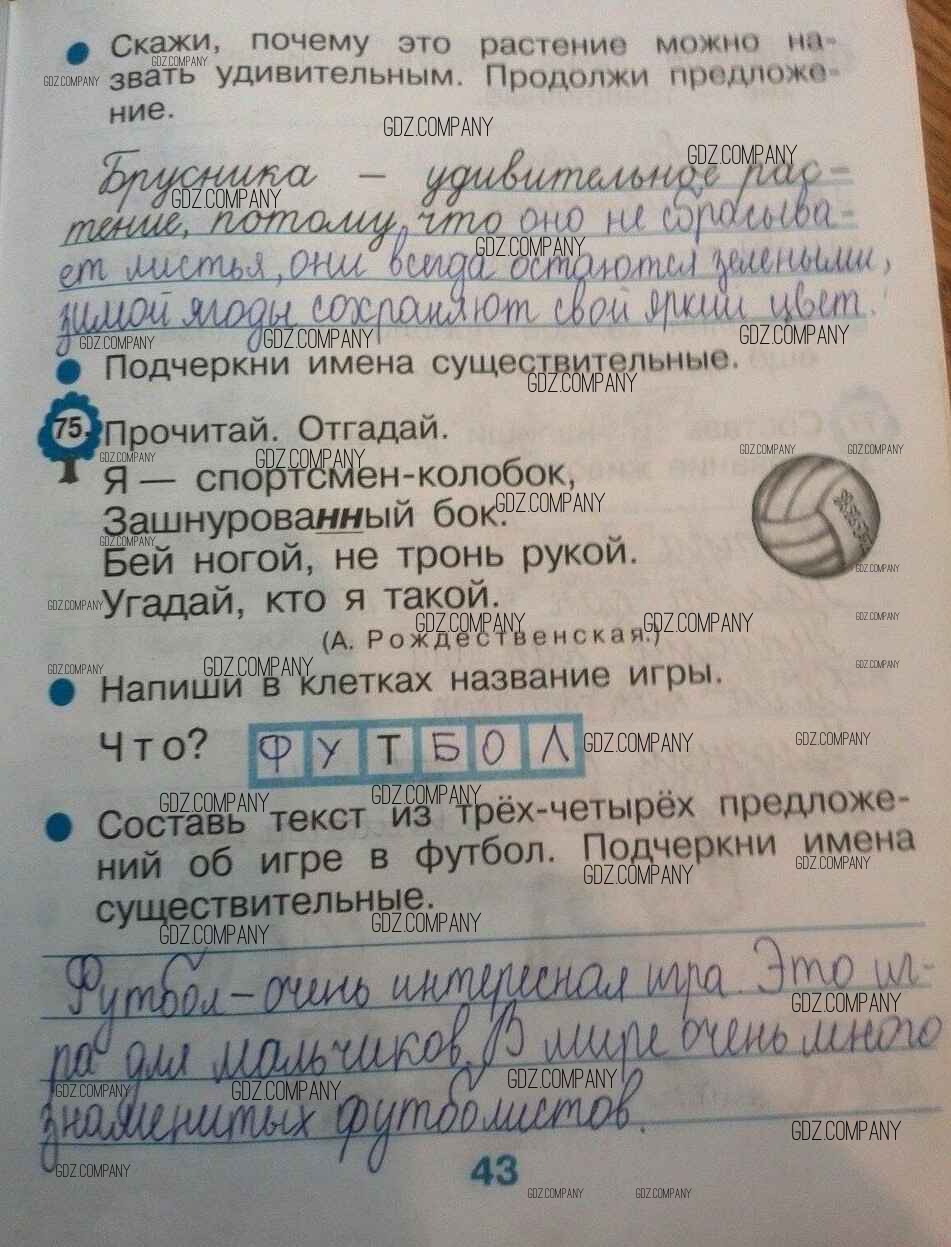 Скажи, почему это растение можно на-
звать удивительным. Продолжи предложе-
ние.
Брусника – удивительное рас-
тение, потому что оно не сбрасыва-
ет листья, они всегда остаются зелеными,
зимой ягоды сохраняют свой яркий цвет.
Подчеркни имена существительные.
75. Прочитай. Отгадай.
Я — спортсмен-колобок,
Зашнурованный бок.
Бей ногой, не тронь рукой.
Угадай, кто я такой.
(А. Рождественская.)
Напиши в клетках название игры.
Что? ФУТБОЛ
Составь текст из трёх-четырёх предложе-
ний об игре в футбол. Подчеркни имена
существительные.
Футбол – очень интересная игра. Это иг-
ра для мальчиков. В мире очень много
знаменитых футболистов.
43
GDZ.COMPANY